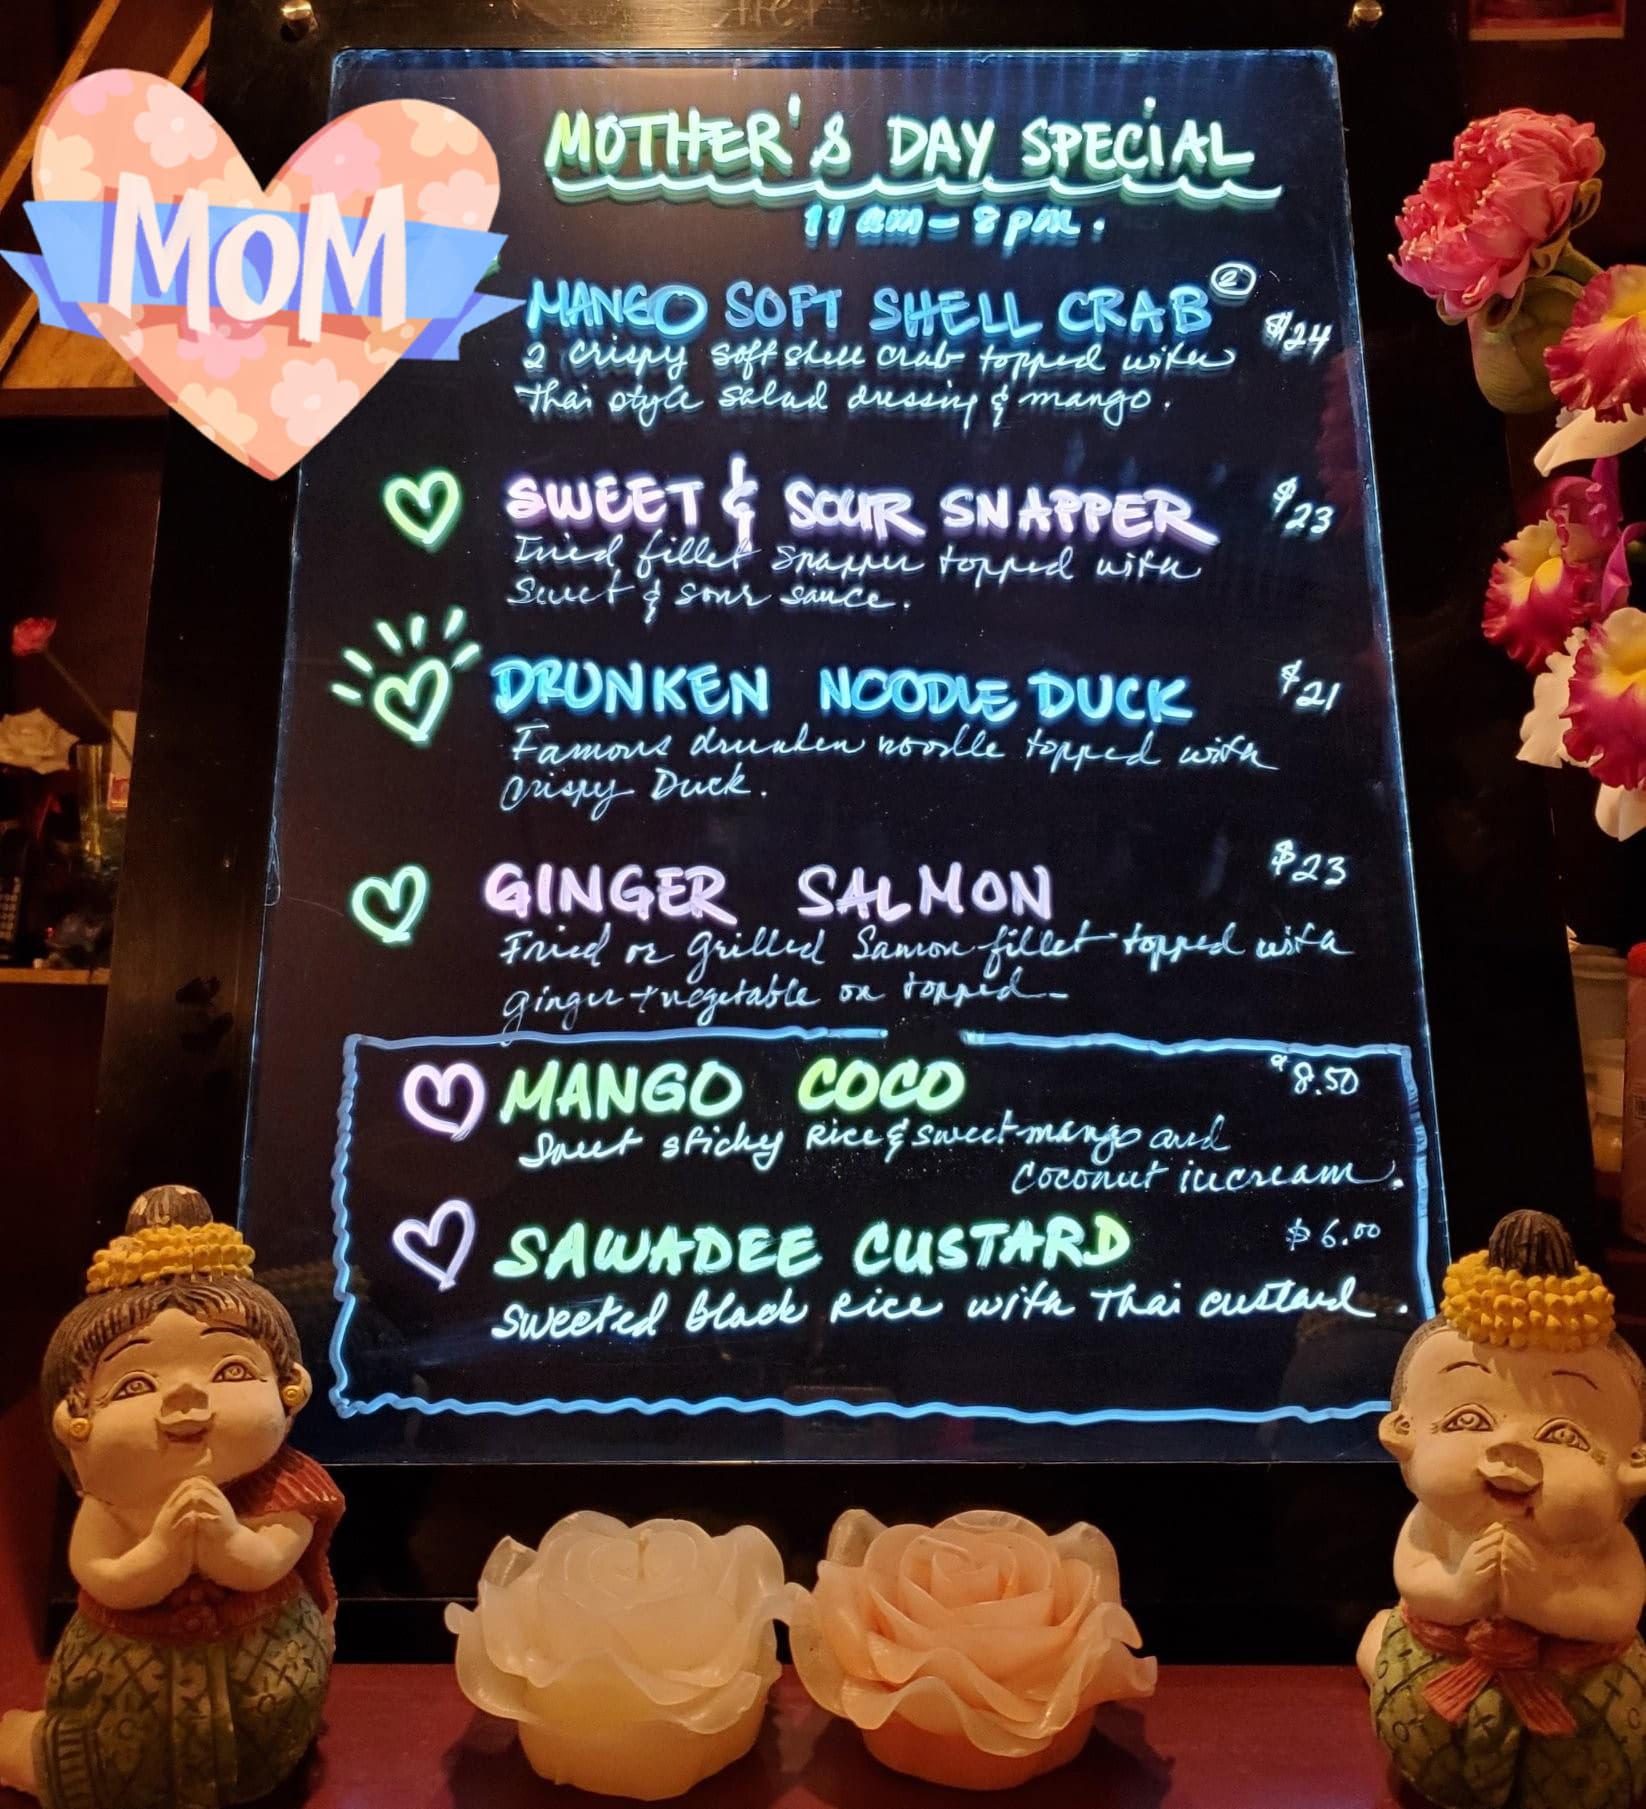 MOM
MOTHER'S DAY SPECIAL
11 am - 8 pm.
MANGO SOFT SHELL CRAB ② $24
2 crispy soft shell crab topped with
Thai style salad dressing & mango.
SWEET & SOUR SNAPPER $23
Fried fillet snapper topped with
Sweet & sour sauce.
DRUNKEN NOODLE DUCK $21
Famous drunken noodle topped with
Crispy Duck.
GINGER SALMON $23
Fried or grilled Samon fillet topped with
ginger + vegetable on topped-
MANGO COCO $8.50
Sweet sticky Rice & sweet mango and
Coconut icecream.
SAWADEE CUSTARD $6.00
Sweeted Black Rice with Thai custard.